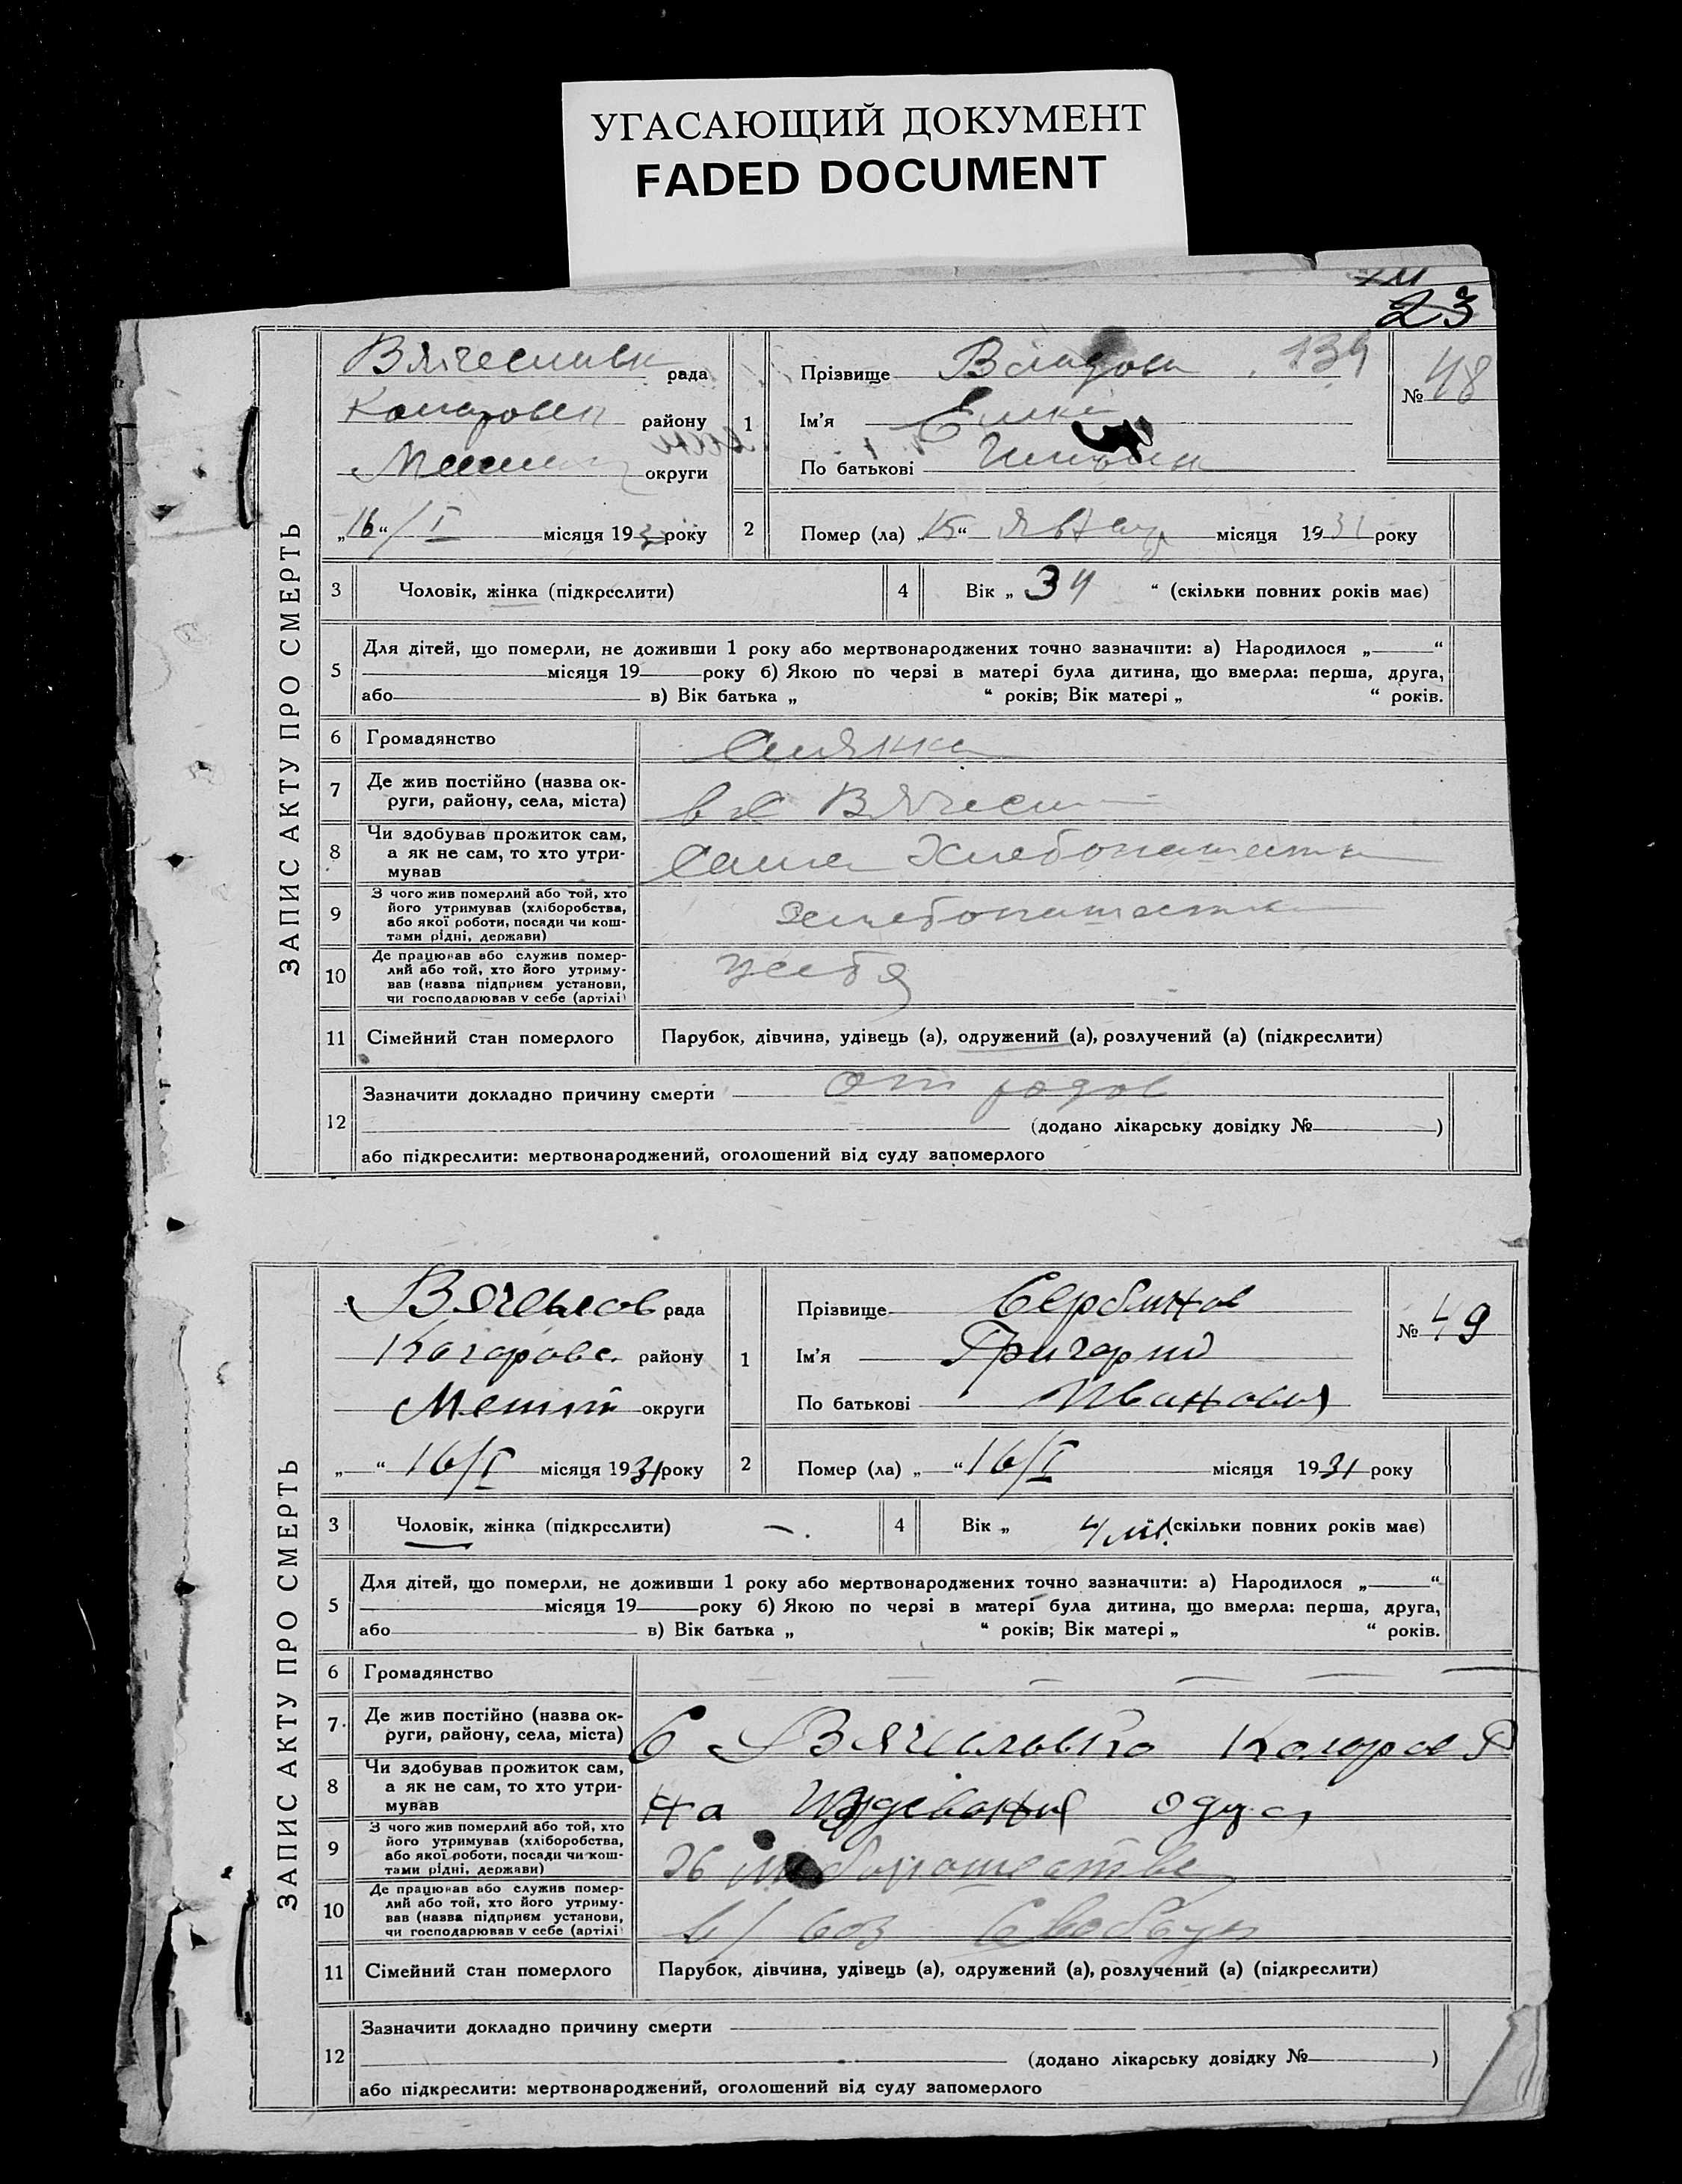 УГАСАЮЩИЙ ДОКУМЕНТ
FADED DOCUMENT
23
ЗАПИС АКТУ ПРО СМЕРТЬ
рада
району
округи
„16“/I місяця 193 року
1
Прізвище 139
Ім'я
По батькові
№ 48
2
Помер (ла) „15“ місяця 1931 року
3
Чоловік, жінка (підкреслити)
4
Вік „34“ (скільки повних років має)
5
Для дітей, що померли, не доживши 1 року або мертвонароджених точно зазначити: а) Народилося „ “
місяця 19 року б) Якою по черзі в матері була дитина, що вмерла: перша, друга,
або в) Вік батька „ “ років; Вік матері „ “ років.
6 Громадянство
7 Де жив постійно (назва ок-
руги, району, села, міста)
в с
8 Чи здобував прожиток сам,
а як не сам, то хто утри-
мував
сама
9 З чого жив померлий або той, хто
його утримував (хліборобства,
або якої роботи, посади чи кош-
тами рідні, держави)
10 Де працював або служив помер-
лий або той, хто його утриму-
вав (назва підприєм установи,
чи господарював у себе (артілі)
у себя
11 Сімейний стан померлого
Парубок, дівчина, удівець (а), одружений (а), розлучений (а) (підкреслити)
12
Зазначити докладно причину смерти от родов
(додано лікарську довідку № )
або підкреслити: мертвонароджений, оголошений від суду запомерлого
ЗАПИС АКТУ ПРО СМЕРТЬ
рада
району
округи
„ “ 16/I місяця 1931 року
1
Прізвище Сербинов
Ім'я Григорий
По батькові Иванович
№ 49
2
Помер (ла) „ “ 16/I місяця 1931 року
3
Чоловік, жінка (підкреслити)
4
Вік „ 4 (скільки повних років має)
5
Для дітей, що померли, не доживши 1 року або мертвонароджених точно зазначити: а) Народилося „ “
місяця 19 року б) Якою по черзі в матері була дитина, що вмерла: перша, друга,
або в) Вік батька „ “ років; Вік матері „ “ років.
6 Громадянство
7 Де жив постійно (назва ок-
руги, району, села, міста)
8 Чи здобував прожиток сам,
а як не сам, то хто утри-
мував
на
9 З чого жив померлий або той, хто
його утримував (хліборобства,
або якої роботи, посади чи кош-
тами рідні, держави)
10 Де працював або служив помер-
лий або той, хто його утриму-
вав (назва підприєм установи,
чи господарював у себе (артілі)
11 Сімейний стан померлого
Парубок, дівчина, удівець (а), одружений (а), розлучений (а) (підкреслити)
12
Зазначити докладно причину смерти
(додано лікарську довідку № )
або підкреслити: мертвонароджений, оголошений від суду запомерлого